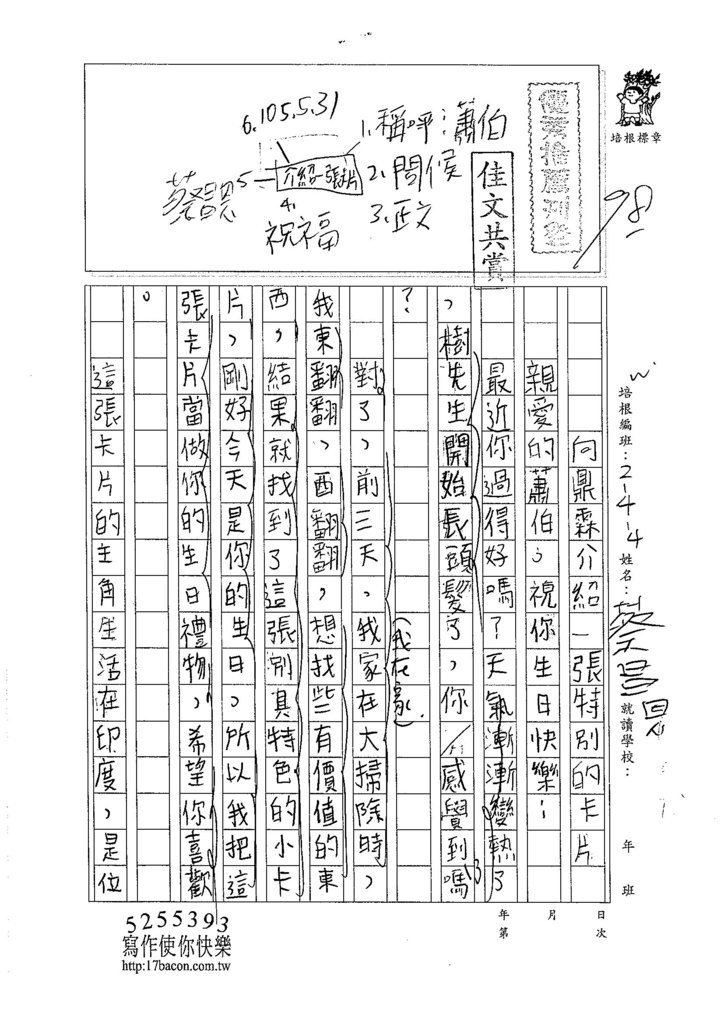 優秀推薦刊登
佳文共賞
培根標章
98
6.105.5.31
1.稱呼:蕭伯
5
介紹一張卡片
2.問候
4.
3.正文
祝福
培根編班:2-4-4 姓名: 就讀學校: 年 班
向鼎霖介紹一張特別的卡片
親愛的蕭伯:祝你生日快樂!
最近你過得好嗎?天氣漸漸變熱了
,樹先生開始長頭髮了,你感覺到嗎
?
(我在家)
對了,前三天,我家在大掃除時,
我東翻翻,西翻翻,想找些有價值的東
西,結果就找到了這張別具特色的小卡
片,剛好今天是你的生日,所以我把這
張卡片當做你的生日禮物,希望你喜歡
。
這張卡片的主角生活在印度,是位
年 月 日
第 次
5255393
寫作使你快樂
http:17bacon.com.tw